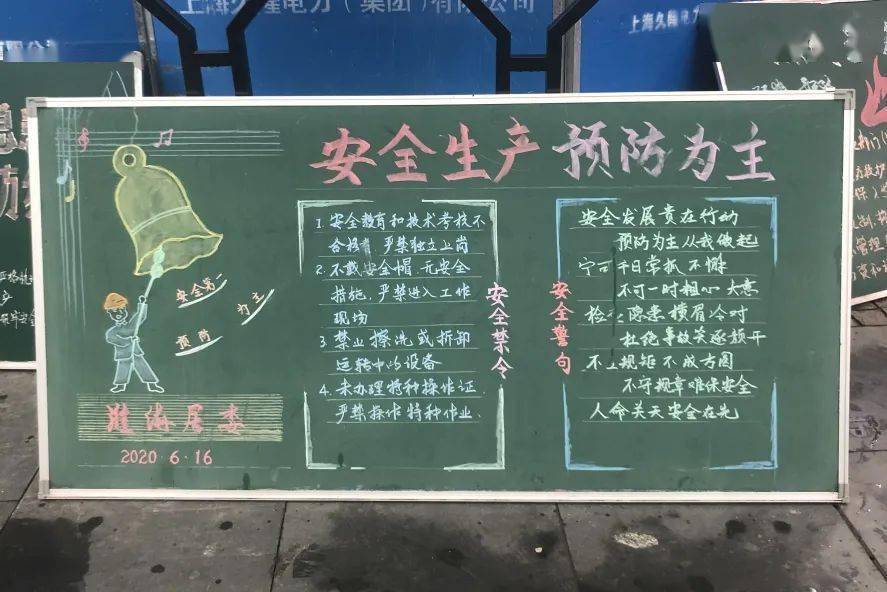 上海久隆电力（集团）有限公司
上海久隆电力
安全生产 预防为主
安全第一
预防 为主
胜海居委
2020·6·16
安全禁令
1. 安全教育和技术考核不
合格者,严禁独立上岗
2. 不戴安全帽、无安全
措施,严禁进入工作
现场
3. 禁止擦洗或拆卸
运转中的设备
4. 未办理特种操作证,
严禁操作特种作业.
安全警句
安全发展贵在行动
预防为主从我做起
宁可千日常抓不懈
不可一时粗心大意
检查隐患横眉冷对
杜绝事故笑逐颜开
不立规矩不成方圆
不守规章难保安全
人命关天安全在先